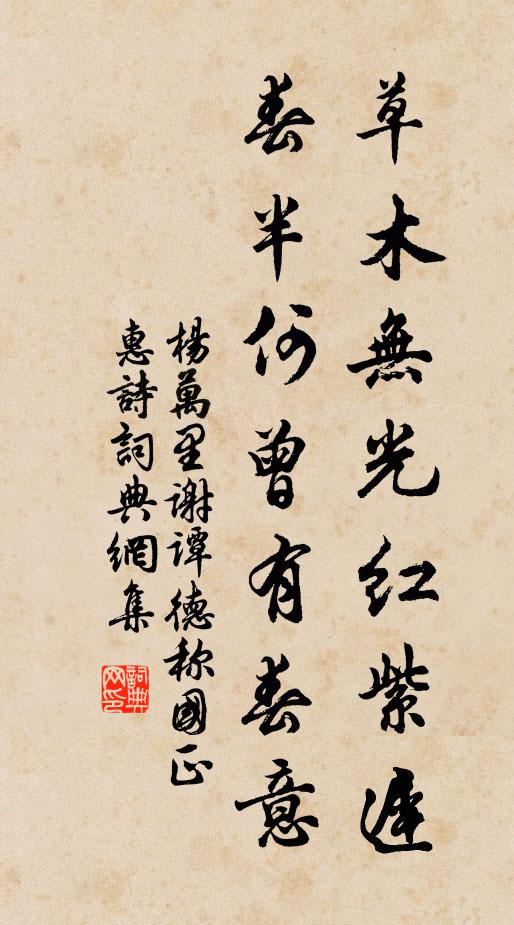 草木無光紅紫遲
春半何曾有春意
楊萬里謝譚德称國正
惠詩詞典網集
詞典网印